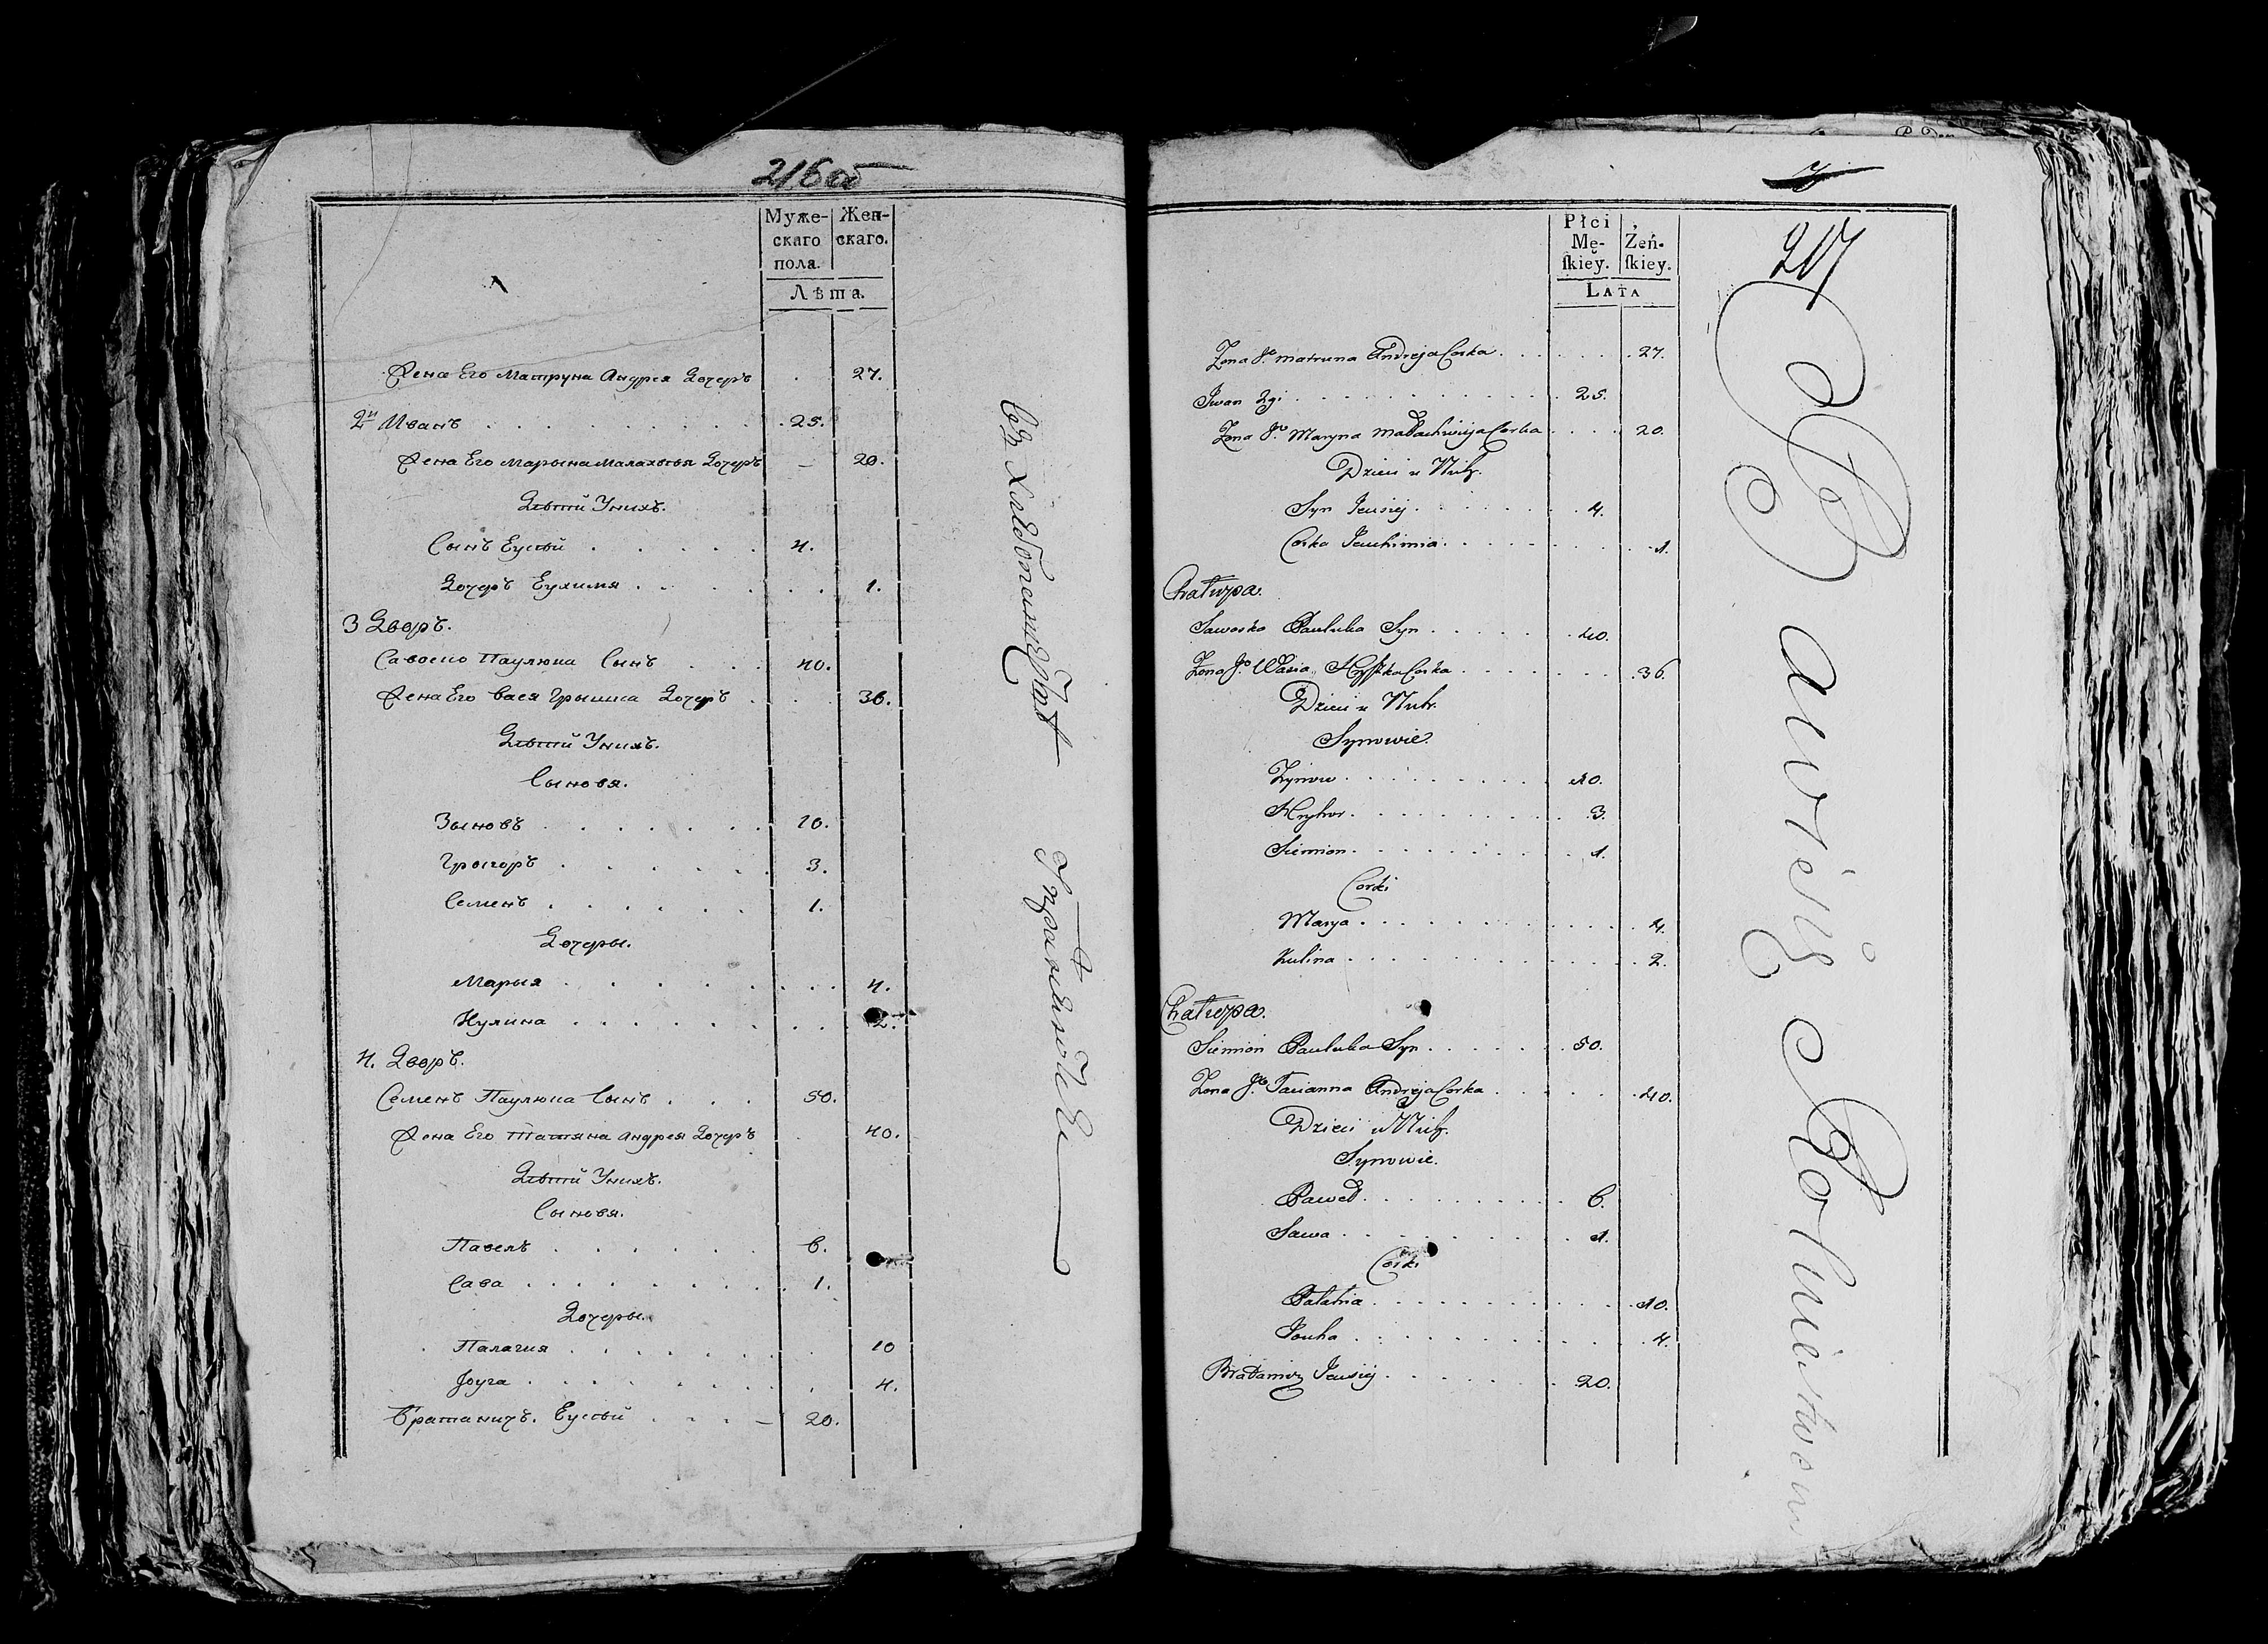 216 об
Муже-
скаго
пола.
Жен-
скаго.
Лѣта.
Жена Его Матруна Андрея Дочерь . 27.
2й Иванъ . . . . . . 25.
Жена Его Марына Малахвѣя Дочерь – 20.
Дѣтй Унихъ.
Сынъ Еусѣй . . . . . 4.
Дочерь Еухимя . . . . . 1.
3 Дворъ.
Савоско Паулюка Сынъ . . . 40.
Жена Его Вася Грышка Дочерь . . . 36.
Дѣтй Унихъ.
Сыновя.
Зыновъ . . . . . . 10.
Грыгоръ . . . . . . 3.
Семенъ . . . . . . 1.
Дочеры.
Марыя . . . . . . . 4.
Кулина . . . . . . . 2.
4. Дворъ.
Семенъ Паулюка Сынъ . . . 50.
Жена Его Татяна Андрея Дочерь . 40.
Дѣтй Унихъ.
Сыновя.
Павелъ . . . . . . 6.
Сава . . . . . . . 1.
Дочеры.
Палагия . . . . . . . 10
Југа . . . . . . . 4.
Братаничъ. Еусѣй . . . – 20.
217
Płci
Mę-
ſkiey.
Żeń-
ſkiey.
LATA
Zona Jo Matruna Andreja Corka . . . . . . 27.
Iwan 2gi . . . . . . . . . 25.
Zona Jo Maryna Małachwieja Corka . . . . 20.
Dzieci u Nich.
Syn Jeusiej . . . . . . . 4.
Corka Jeuchimia . . . . . . . . . 1.
Chałupa.
Sawosko Pauluka Syn . . . . . . 40.
Zona Jo Wasia Hryszka Corka . . . . . . . 36.
Dzieci u Nich.
Synowie.
Zynow . . . . . . . . . 10.
Hryhor . . . . . . . . . 3.
Siemion . . . . . . . . . 1.
Corki
Marya . . . . . . . . . . . 4.
Kulina . . . . . . . . . . . 2.
Chałupa.
Siemion Pauluka Syn . . . . . . 50.
Zona Jo Tacianna Andreja Corka . . . . . 40.
Dzieci u Nich.
Synowie.
Paweł . . . . . . . . . 6.
Sawa . . . . . . . . . 1.
Corki
Pałahia . . . . . . . . . . . 10.
Jouha . . . . . . . . . . . 4.
Bratanicz Jeusiej . . . . . . . 20.